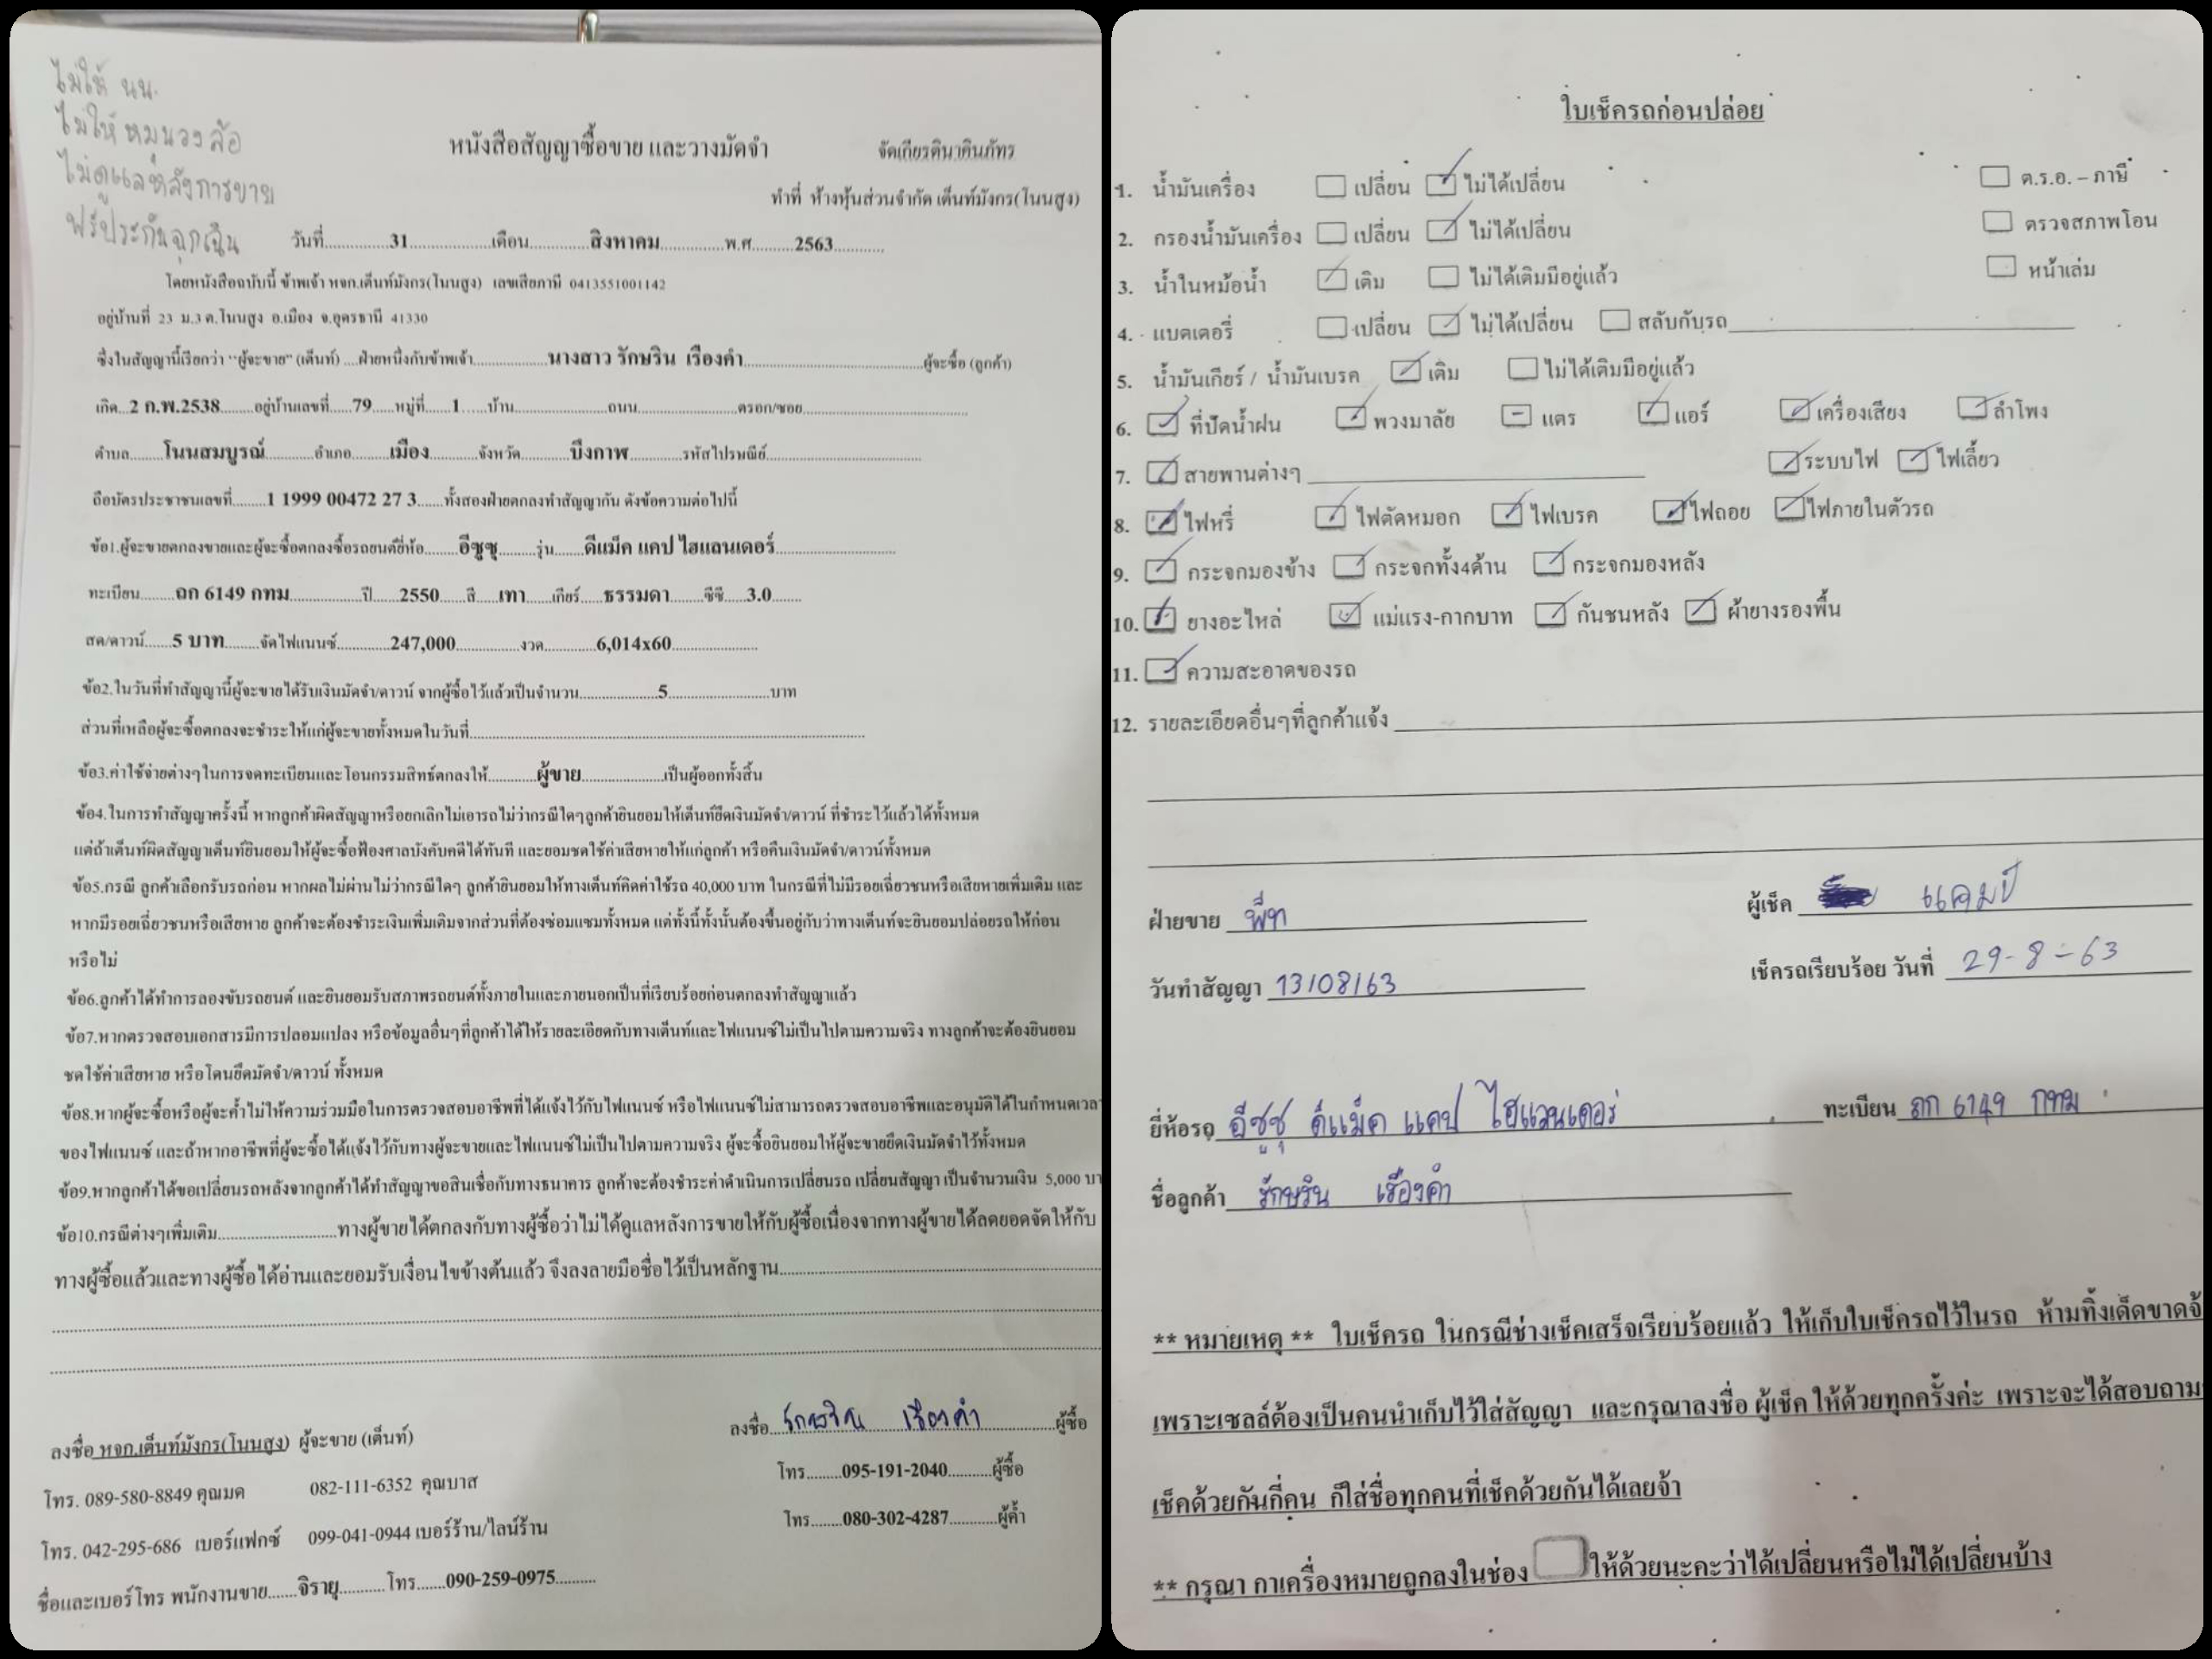 ไม่ให้ นน.
ไม่ให้ หมนวง ล้อ
ไม่ดูแลหลังการขาย
ฟรีประกันฉุกเฉิน
หนังสือสัญญาซื้อขาย และวางมัดจำ จัดเกียรตินาคินภัทร
ทำที่ ห้างหุ้นส่วนจำกัด เต็นท์มังกร(โนนสูง)
วันที่..............31....................เดือน..............สิงหาคม...............พ.ศ..........2563...........
โดยหนังสือฉบับนี้ ข้าพเจ้า หจก.เต็นท์มังกร(โนนสูง) เลขเสียภาษี 0413551001142
อยู่บ้านที่ 23 ม.3 ต.โนนสูง อ.เมือง จ.อุดรธานี 41330
ซึ่งในสัญญานี้เรียกว่า “ผู้จะขาย” (เต็นท์) ....ฝ่ายหนึ่งกับข้าพเจ้า.................นางสาว รักษริน เรืองคำ........................................ผู้จะซื้อ (ลูกค้า)
เกิด...2 ก.พ.2538........อยู่บ้านเลขที่.....79.....หมู่ที่......1......บ้าน.....................ถนน......................ตรอก/ซอย....................................
ตำบล.......โนนสมบูรณ์...........อำเภอ........เมือง...........จังหวัด.........บึงกาฬ............รหัสไปรษณีย์..................................
ถือบัตรประชาชนเลขที่.........1 1999 00472 27 3.......ทั้งสองฝ่ายตกลงทำสัญญากัน ดังข้อความต่อไปนี้
ข้อ1.ผู้จะขายตกลงขายและผู้จะซื้อตกลงซื้อรถยนต์ยี่ห้อ........อีซูซุ.........รุ่น.......ดีแม็ค แคป ไฮแลนเดอร์...........................
ทะเบียน........ฌก 6149 กทม................ปี......2550......สี.....เทา......เกียร์.....ธรรมดา.......ซีซี.....3.0.......
สด/ดาวน์......5 บาท........จัดไฟแนนซ์.............247,000...............งวด............6,014x60....................
ข้อ2.ในวันที่ทำสัญญานี้ผู้จะขายได้รับเงินมัดจำ/ดาวน์ จากผู้ซื้อไว้แล้วเป็นจำนวน..................5.......................บาท
ส่วนที่เหลือผู้จะซื้อตกลงจะชำระให้แก่ผู้จะขายทั้งหมดในวันที่................................................................................
ข้อ3.ค่าใช้จ่ายต่างๆในการจดทะเบียนและโอนกรรมสิทธ์ตกลงให้............ผู้ขาย.................เป็นผู้ออกทั้งสิ้น
ข้อ4.ในการทำสัญญาครั้งนี้ หากลูกค้าผิดสัญญาหรือยกเลิกไม่เอารถไม่ว่ากรณีใดๆลูกค้ายินยอมให้เต็นท์ยึดเงินมัดจำ/ดาวน์ ที่ชำระไว้แล้วได้ทั้งหมด
แต่ถ้าเต็นท์ผิดสัญญาเต็นท์ยินยอมให้ผู้จะซื้อฟ้องศาลบังคับคดีได้ทันที และยอมชดใช้ค่าเสียหายให้แก่ลูกค้า หรือคืนเงินมัดจำ/ดาวน์ทั้งหมด
ข้อ5.กรณี ลูกค้าเลือกรับรถก่อน หากผลไม่ผ่านไม่ว่ากรณีใดๆ ลูกค้ายินยอมให้ทางเต็นท์คิดค่าใช้รถ 40,000 บาท ในกรณีที่ไม่มีรอยเฉี่ยวชนหรือเสียหายเพิ่มเติม และ
หากมีรอยเฉี่ยวชนหรือเสียหาย ลูกค้าจะต้องชำระเงินเพิ่มเติมจากส่วนที่ต้องซ่อมแซมทั้งหมด แต่ทั้งนี้ทั้งนั้นต้องขึ้นอยู่กับว่าทางเต็นท์จะยินยอมปล่อยรถให้ก่อน
หรือไม่
ข้อ6.ลูกค้าได้ทำการลองขับรถยนต์ และยินยอมรับสภาพรถยนต์ทั้งภายในและภายนอกเป็นที่เรียบร้อยก่อนตกลงทำสัญญาแล้ว
ข้อ7.หากตรวจสอบเอกสารมีการปลอมแปลง หรือข้อมูลอื่นๆที่ลูกค้าได้ให้รายละเอียดกับทางเต็นท์และไฟแนนซ์ไม่เป็นไปตามความจริง ทางลูกค้าจะต้องยินยอม
ชดใช้ค่าเสียหาย หรือโดนยึดมัดจำ/ดาวน์ ทั้งหมด
ข้อ8.หากผู้จะซื้อหรือผู้จะค้ำไม่ให้ความร่วมมือในการตรวจสอบอาชีพที่ได้แจ้งไว้กับไฟแนนซ์ หรือไฟแนนซ์ไม่สามารถตรวจสอบอาชีพและอนุมัติได้ในกำหนดเวลา
ของไฟแนนซ์ และถ้าหากอาชีพที่ผู้จะซื้อได้แจ้งไว้กับทางผู้จะขายและไฟแนนซ์ไม่เป็นไปตามความจริง ผู้จะซื้อยินยอมให้ผู้จะขายยึดเงินมัดจำไว้ทั้งหมด
ข้อ9.หากลูกค้าได้ขอเปลี่ยนรถหลังจากลูกค้าได้ทำสัญญาขอสินเชื่อกับทางธนาคาร ลูกค้าจะต้องชำระค่าดำเนินการเปลี่ยนรถ เปลี่ยนสัญญา เป็นจำนวนเงิน 5,000 บา
ข้อ10.กรณีต่างๆเพิ่มเติม..........................ทางผู้ขายได้ตกลงกับทางผู้ซื้อว่าไม่ได้ดูแลหลังการขายให้กับผู้ซื้อเนื่องจากทางผู้ขายได้ลดยอดจัดให้กับ
ทางผู้ซื้อแล้วและทางผู้ซื้อได้อ่านและยอมรับเงื่อนไขข้างต้นแล้ว จึงลงลายมือชื่อไว้เป็นหลักฐาน......................................
ลงชื่อ หจก.เต็นท์มังกร(โนนสูง) ผู้จะขาย (เต็นท์) ลงชื่อ.... รักษริน เรืองคำ ..............ผู้ซื้อ
โทร. 089-580-8849 คุณมด 082-111-6352 คุณบาส โทร........095-191-2040..........ผู้ซื้อ
โทร. 042-295-686 เบอร์แฟกซ์ 099-041-0944 เบอร์ร้าน/ไลน์ร้าน โทร.......080-302-4287..........ผู้ค้ำ
ชื่อและเบอร์โทร พนักงานขาย......จิรายุ..........โทร......090-259-0975.........
ใบเช็ครถก่อนปล่อย
1. น้ำมันเครื่อง เปลี่ยน ไม่ได้เปลี่ยน ต.ร.อ. – ภาษี
2. กรองน้ำมันเครื่อง เปลี่ยน ไม่ได้เปลี่ยน ตรวจสภาพโอน
3. น้ำในหม้อน้ำ เติม ไม่ได้เติมมีอยู่แล้ว หน้าเล่ม
4. แบตเตอรี่ เปลี่ยน ไม่ได้เปลี่ยน สลับกับรถ
5. น้ำมันเกียร์ / น้ำมันเบรค เติม ไม่ได้เติมมีอยู่แล้ว
6. ที่ปัดน้ำฝน พวงมาลัย แตร แอร์ เครื่องเสียง ลำโพง
7. สายพานต่างๆ ระบบไฟ ไฟเลี้ยว
8. ไฟหรี่ ไฟตัดหมอก ไฟเบรค ไฟถอย ไฟภายในตัวรถ
9. กระจกมองข้าง กระจกทั้ง4ด้าน กระจกมองหลัง
10. ยางอะไหล่ แม่แรง-กากบาท กันชนหลัง ผ้ายางรองพื้น
11. ความสะอาดของรถ
12. รายละเอียดอื่นๆที่ลูกค้าแจ้ง
ฝ่ายขาย พีท ผู้เช็ค แคมป์
วันทำสัญญา 13/08/63 เช็ครถเรียบร้อย วันที่ 29-8-63
ยี่ห้อรถ อีซูซุ ดีแม็ค แคป ไฮแลนเดอร์ ทะเบียน ฌก 6149 กทม
ชื่อลูกค้า รักษริน เรืองคำ
** หมายเหตุ ** ใบเช็ครถ ในกรณีช่างเช็คเสร็จเรียบร้อยแล้ว ให้เก็บใบเช็ครถไว้ในรถ ห้ามทิ้งเด็ดขาดจ้
เพราะเซลล์ต้องเป็นคนนำเก็บไว้ใส่สัญญา และกรุณาลงชื่อ ผู้เช็ค ให้ด้วยทุกครั้งค่ะ เพราะจะได้สอบถาม
เช็คด้วยกันกี่คน ก็ใส่ชื่อทุกคนที่เช็คด้วยกันได้เลยจ้า
** กรุณา กาเครื่องหมายถูกลงในช่อง ให้ด้วยนะคะว่าได้เปลี่ยนหรือไม่ได้เปลี่ยนบ้าง